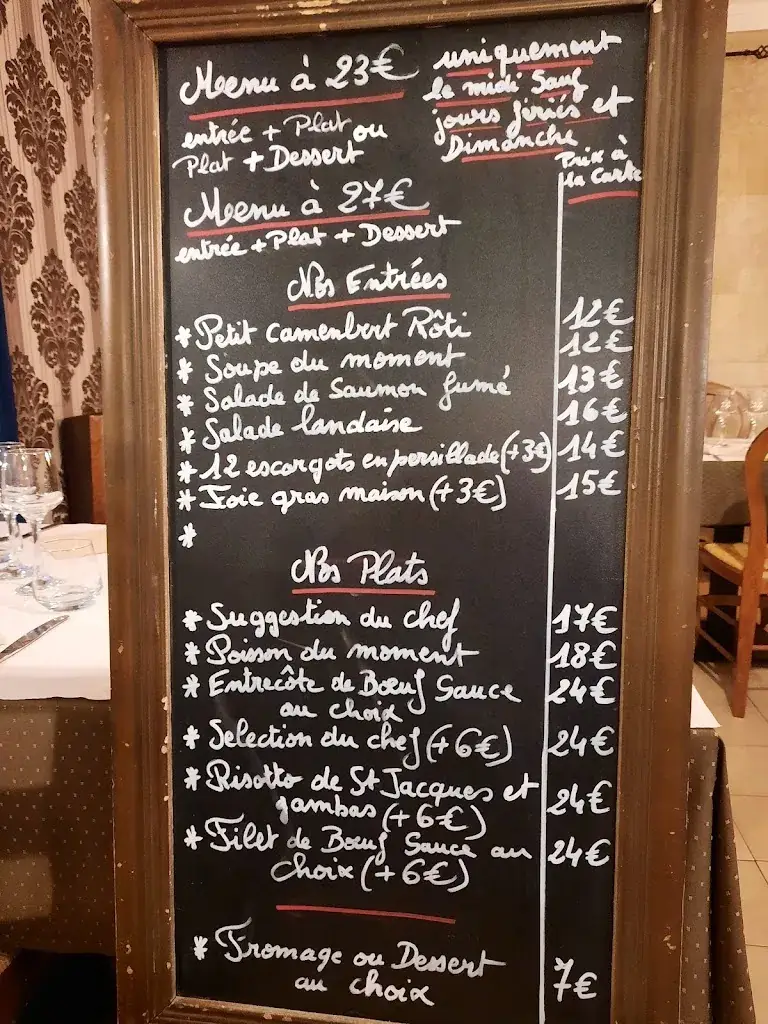 Menu à 23€
uniquement
le midi Sauf
jours fériés et
Dimanche
entrée + Plat ou
Plat + Dessert
Prix à
la Carte
Menu à 27€
entrée + Plat + Dessert
Nos Entrées
* Petit Camenbert Rôti 12€
* Soupe du moment 12€
* Salade de Saumon fumé 13€
* Salade landaise 16€
* 12 escargots en persillade (+3€) 14€
* Foie gras maison (+3€) 15€
*
Nos Plats
* Suggestion du chef 17€
* Poisson du moment 18€
* Entrecôte de Bœuf Sauce 24€
au choix
* Selection du chef (+6€) 24€
* Risotto de St Jacques et 24€
gambas (+6€)
* Filet de Bœuf Sauce au 24€
choix (+6€)
* Fromage ou Dessert
au choix 7€